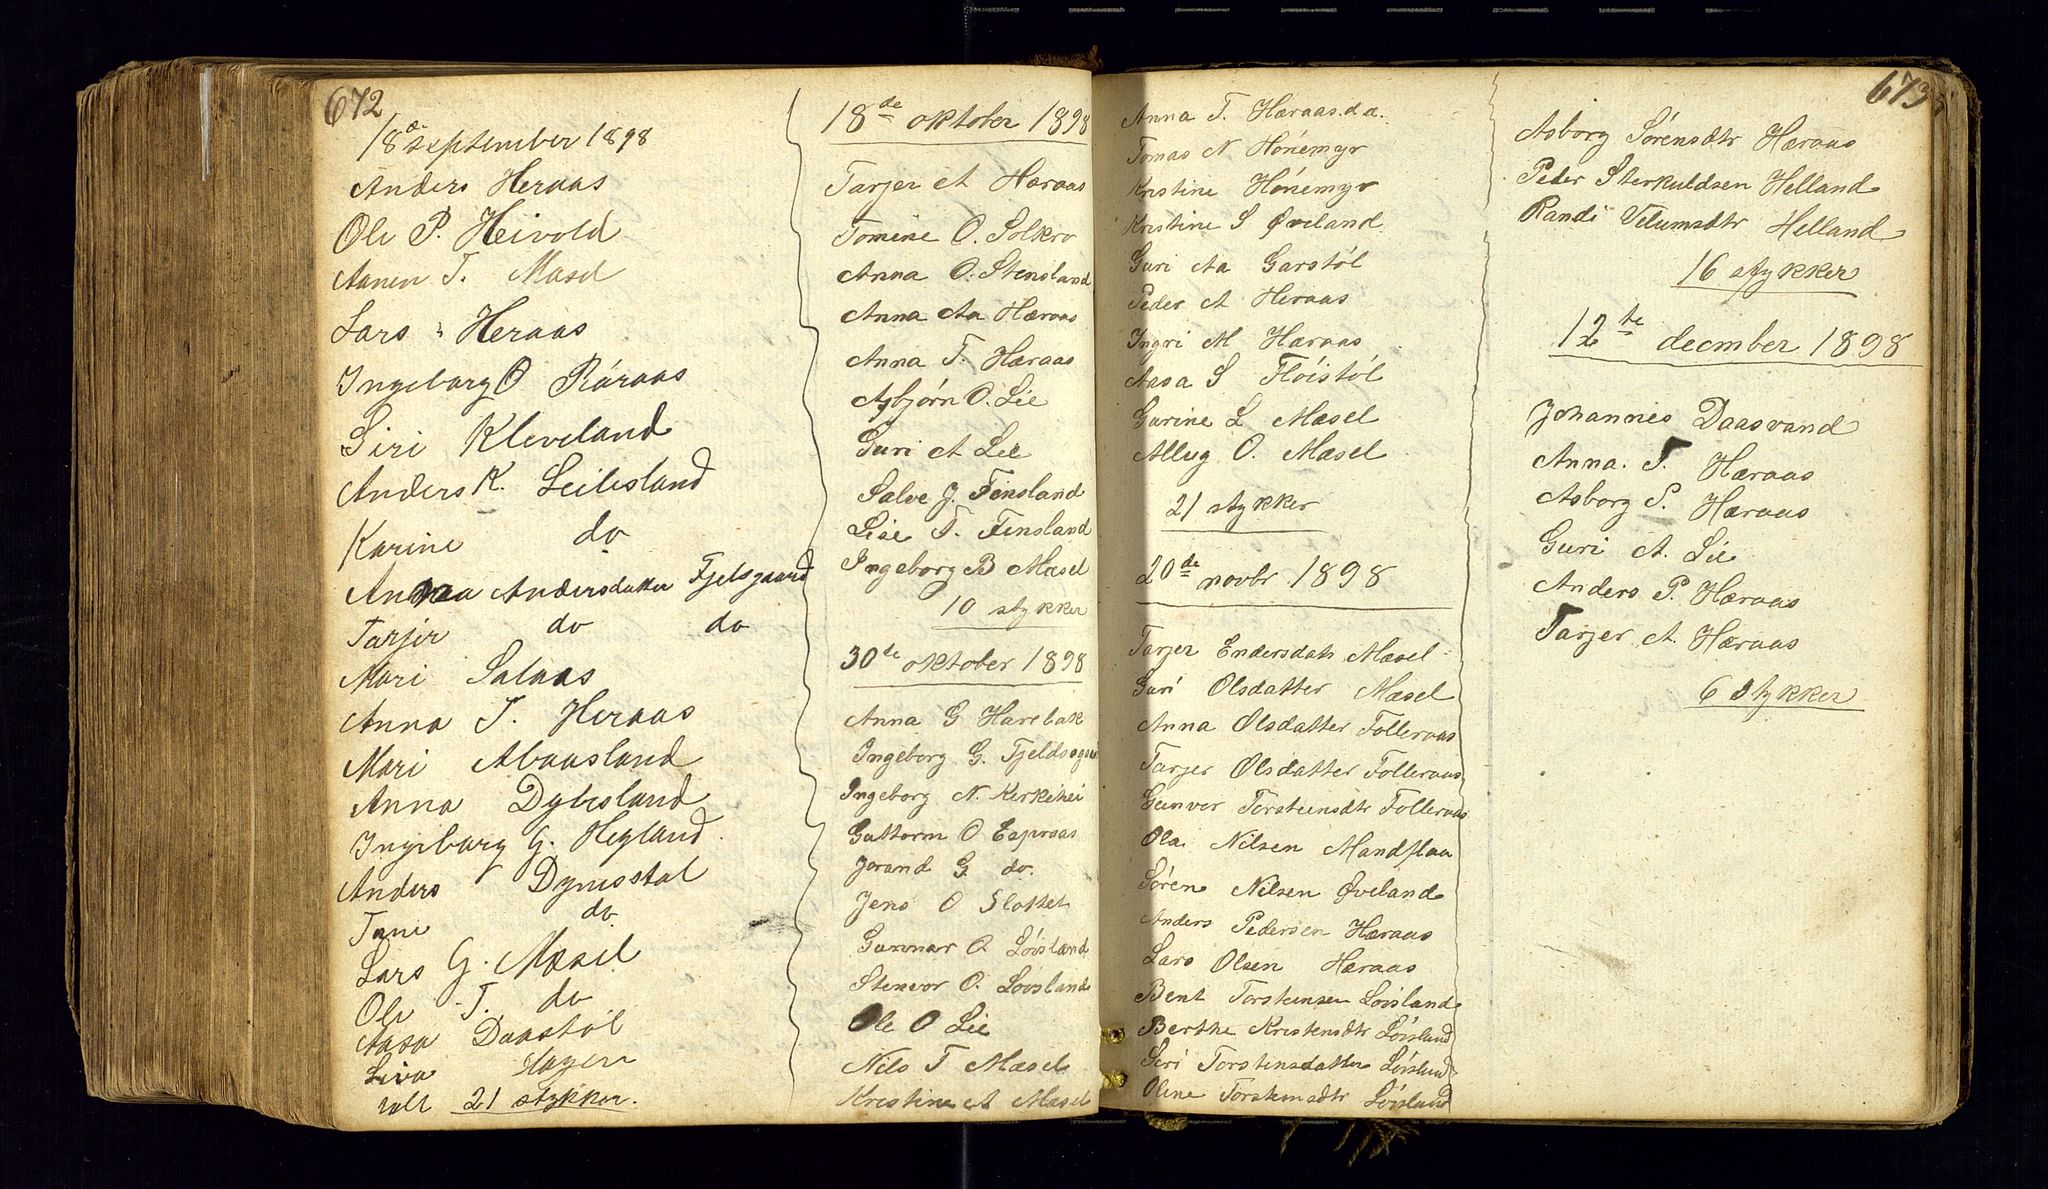 672
18de september 1898
Anders Heraas
Ole P. Heivold
Aanen T. Masel
Lars Heraas
Ingeborg O Raraas
Siri Kleveland
Anders K. Leilisland
Karine do
Anna Andersdatter Fjelsgaard
Tarjer do do
Mari Salaas
Anna T. Heraas
Mari Abaasland
Anna Dybesland
Ingebarg G. Hegland.
Anders Dynestøl
Tune do
Lars G. Mæsel
Ole T. do
Aasa Daastøl
Liva Hagen
talt 21 stykker.
18de oktober 1898
Tarjer A Hæraas
Tomine O. Solkro
Anna O. Stensland
Anna Aa Hæraas
Anna T. Hæraas
Asbjørn O. Lie
Guri A Lie
Salve J. Finsland
Lise T. Finsland
Ingeborg B Mæsel
10 stykker
30te oktober 1898
Anna G Harebak
Ingeborg G. Fjeldsgaard
Ingeborg N. Kirkehei
Guttorm O Espraas
Jorand G do.
Jens O Slottet
Gunnar O. Løisland
Stenvor O. Løvsland
Ole O Lie
Nils T Mæsel
Kristine A Mæsel
673
Anna T. Hæraas. d.a.
Tomas N Hónemyr
Kristine Hónemyr
Kristine S Øveland
Guri Aa Garstól
Peder A Heraas
Ingri M Hæraas
Aasa S Flóistól
Gurine L Mæsel
Alleug O. Mæsel
21 stykker
20de novbr. 1898
Tarjer Endersdatr Mæsel
Guri Olsdatter Mæsel
Anna Olsdatter Folleraas
Tarjer Olsdatter Folleraas
Gunvor Torsteinsdtr Folleraas
Ola Nilsen Mandflaa
Søren Nilsen Øveland
Anders Pedersen Hæraas
Lars Olsen Hæraas
Bent Torsteinsen Løisland
Berthe Kristensdtr Lóisland
Siri Torstensdatter Lóisland
Oline Torsteinsdtr Lóisland
Asborg Sórensdtr Hæraas
Peder Sterkuldsen Helland
Randi Velumsdtr Helland
16 stykker
12te decmber 1898
Johannes Daasvand
Anna. T. Hæraas
Asborg S. Hæraas
Guri A. Lie
Anders P. Hæraas
Tarjer A. Hæraas
6 stykker